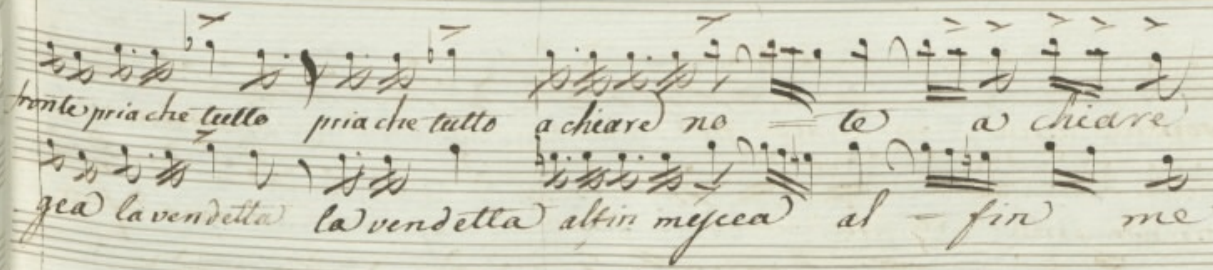 fronte pria che tutto pria che tutto a chiare no = te a chiare
gea la vendetta la vendetta alfin mescea al - fin me